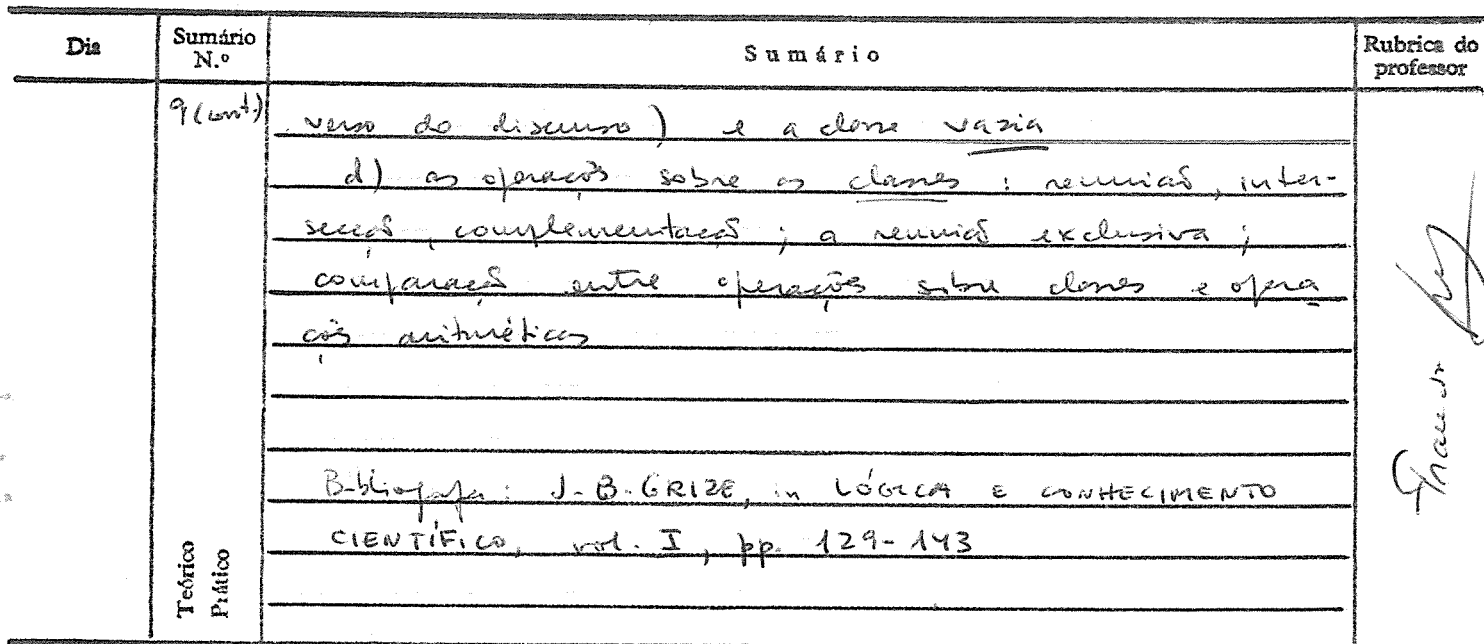 Dia Sumário N.º Sumário Rubrica do professor
9 (cont.) verso do discurso) e a classe vazia
d) as operações sobre as classes : reunião, inter-
secção, complementação ; a reunião exclusiva ;
comparação entre operações sobre classes e opera
ções aritméticas
Bibliografia : J-B. GRIZE, in LÓGICA E CONHECIMENTO
CIENTÍFICO, vol. I, pp. 129-143
Teórico
Prático